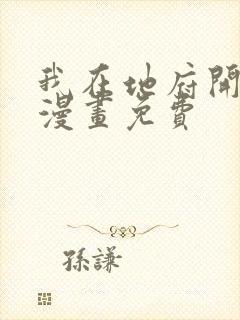 我在地府開
漫畫免費
孫謙